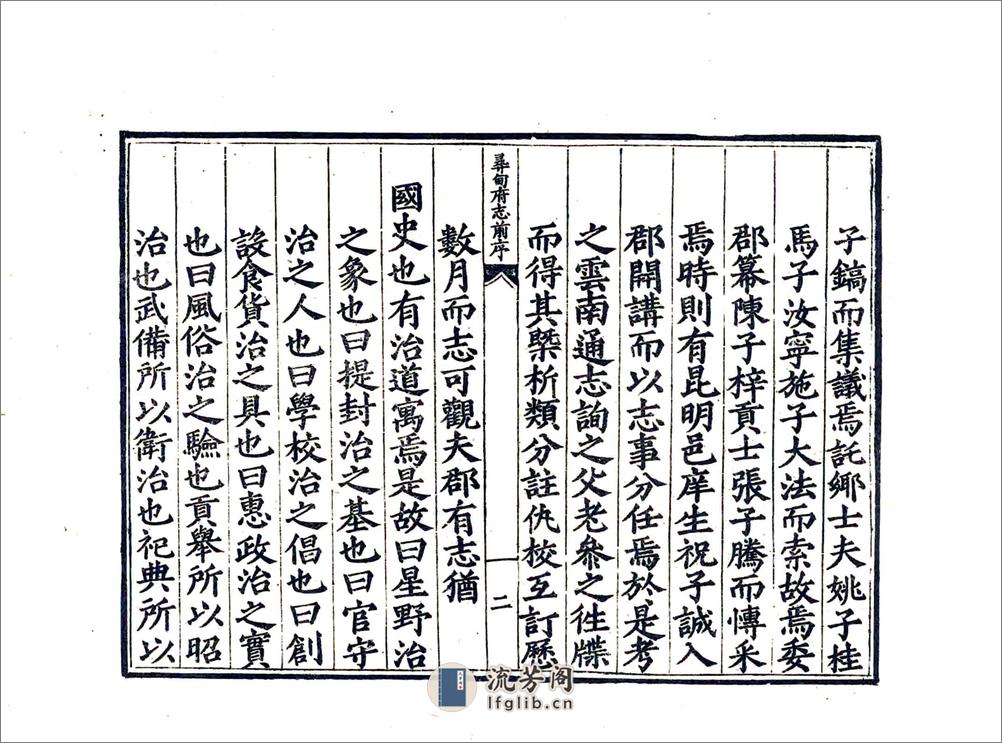 子鎬而集議焉託鄉士夫姚子桂
馬子汝寧施子大法而索故焉委
郡幕陳子梓貢士張子騰而愽采
焉時則有昆明邑庠生祝子誠入
郡開講而以志事分任焉於是考
之雲南通志詢之父老叅之徃牒
而得其槩析類分註仇校互訂歷
尋甸府志前序
二
數月而志可觀夫郡有志猶
國史也有治道寓焉是故曰星野治
之象也曰提封治之基也曰官守
治之人也曰學校治之倡也曰創
設食貨治之具也曰惠政治之實
也曰風俗治之驗也貢舉所以昭
治也武備所以衛治也祀典所以
流芳阁
lfglib.cn